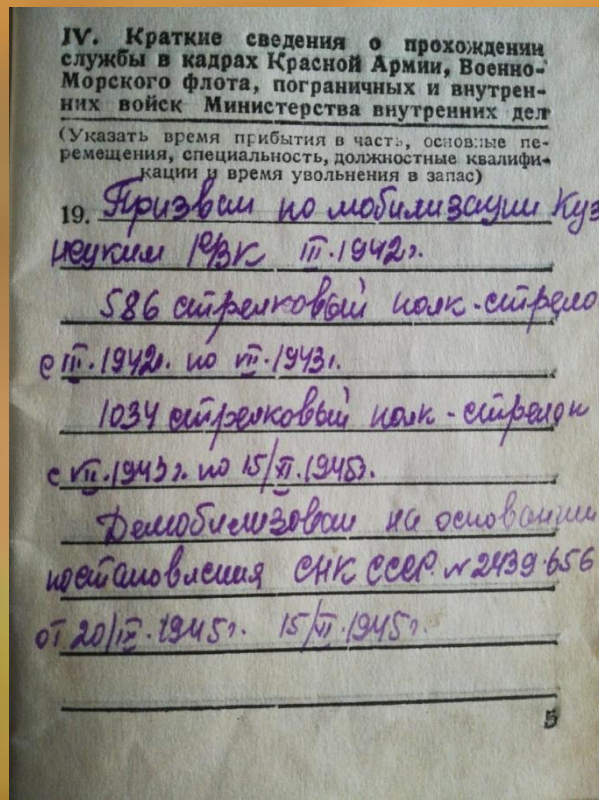 IV. Краткие сведения о прохождении
службы в кадрах Красной Армии, Военно-
Морского флота, пограничных и внутрен-
них войск Министерства внутренних дел
(Указать время прибытия в часть, основные пе-
ремещения, специальность, должностные квалифи-
кации и время увольнения в запас)
19. Призван по мобилизации Куз
нецким РВК III.1942г.
586 стрелковый полк - стрело
с III.1942г. по VII.1943г.
1034 стрелковый полк - стрелок
с VII.1943г. по 15/XI.1945г.
Демобилизован на основании
постановления СНК СССР. N 2439-656
от 20/IX.1945г. 15/XI.1945г.
5